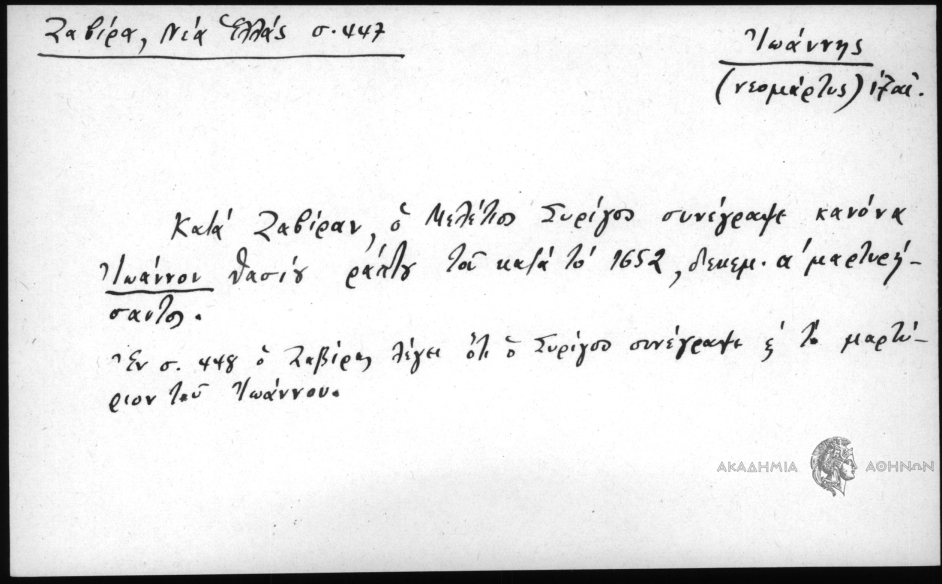 Ζαβίρα, Νέα Ἑλλάς σ. 447
Ἰωάννης
(νεομάρτυς) ιζ αἰ.
Κατὰ Ζαβίραν, ὁ Μελέτιος Συρίγος συνέγραψε κανόνα
Ἰωάννου Θασίου ῥάπτου τοῦ κατὰ τὸ 1652, δεκεμ. α΄ μαρτυρή-
σαντος.
Ἐν σ. 448 ὁ Ζαβίρας λέγει ὅτι ὁ Συρίγος συνέγραψε ἐ τὸ μαρτύ-
ριον τοῦ Ἰωάννου.
ΑΚΑΔΗΜΙΑ ΑΘΗΝΩΝ